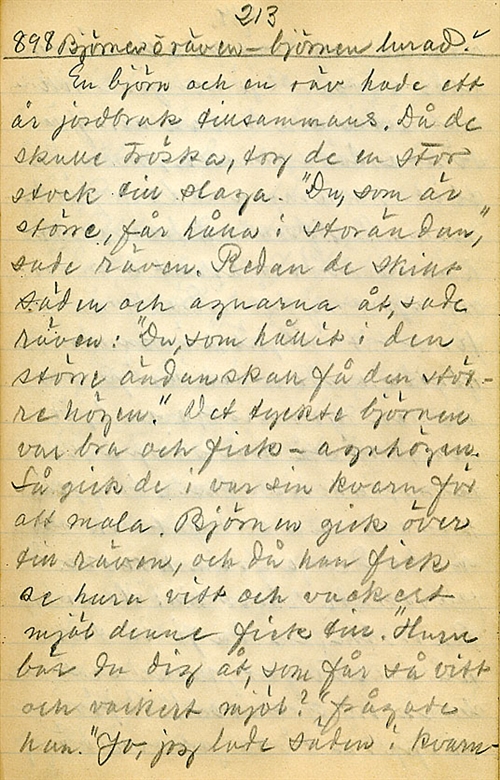 213
898 Björnen o räven – björnen lurad.
En björn och en räv hade ett
år jordbruk tillsammans. Då de
skulle tröska, tog de en stor
stock till slaga. "Du, som är
större, får hålla i storändan,"
sade räven. Redan de skilt
säden och agnarna åt, sade
räven: "Du, som hållit i den
större ändan skall få den stör-
re högen." Det tyckte björnen
var bra och fick – agnhögen.
Så gick de i var sin kvarn för
att mala. Björnen gick över
till räven, och då han fick
se huru vitt och vackert
mjöl denne fick till. "Huru
bär du dig åt, som får så vitt
och vackert mjöl?" frågade
han. "Jo, jag lade säden i kvarn-